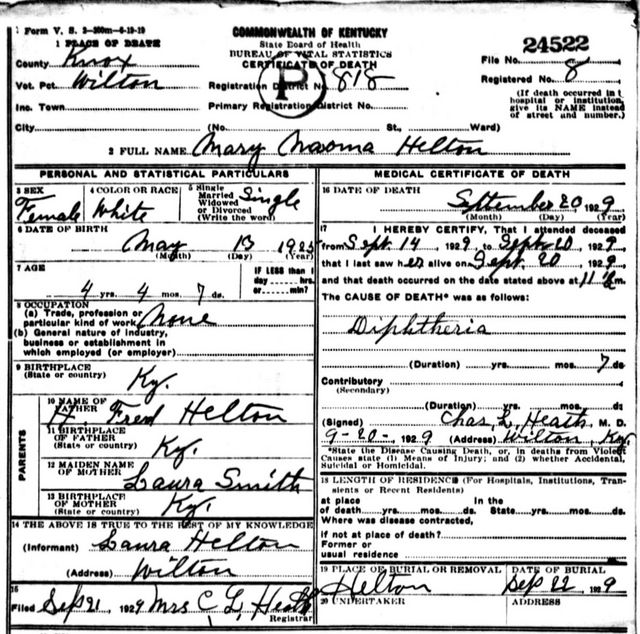 Form V. S. 2-300m-6-19-19
COMMONWEALTH OF KENTUCKY
State Board of Health
BUREAU OF VITAL STATISTICS
CERTIFICATE OF DEATH
24522
1 PLACE OF DEATH
County Knox
File No.
Vot. Pct. Wilton
Registration District No. 818
Registered No. 8
P
Inc. Town
Primary Registration District No.
(If death occurred in a hospital or institution, give its NAME instead of street and number.)
City (No. St., Ward)
2 FULL NAME Mary Naoma Helton
PERSONAL AND STATISTICAL PARTICULARS
3 SEX Female
4 COLOR OR RACE White
5 Single Married Widowed or Divorced (Write the word) Single
6 DATE OF BIRTH
May 13 1925
(Month) (Day) (Year)
7 AGE
4 yrs. 4 mos. 7 ds.
IF LESS than 1 day hrs. or min.?
8 OCCUPATION
(a) Trade, profession or particular kind of work None
(b) General nature of industry, business or establishment in which employed (or employer)
9 BIRTHPLACE
(State or country) Ky.
PARENTS
10 NAME OF FATHER H. Fred Helton
11 BIRTHPLACE OF FATHER
(State or country) Ky.
12 MAIDEN NAME OF MOTHER Laura Smith
13 BIRTHPLACE OF MOTHER
(State or country) Ky.
14 THE ABOVE IS TRUE TO THE BEST OF MY KNOWLEDGE
(Informant) Laura Helton
(Address) Wilton
15
Filed Sep 21, 1929 Mrs C L Heath
Registrar
MEDICAL CERTIFICATE OF DEATH
16 DATE OF DEATH
September 20 1929
(Month) (Day) (Year)
17 I HEREBY CERTIFY, That I attended deceased
from Sept. 14 1929, to Sept. 20, 1929
that I last saw her alive on Sept. 20 1929,
and that death occurred on the date stated above at 11 m.
The CAUSE OF DEATH* was as follows:
Diphtheria
(Duration) yrs. mos. 7 ds.
Contributory
(Secondary)
(Duration) yrs. mos. ds.
(Signed) Chas. L. Heath, M. D.
9-20-, 1929 (Address) Wilton, Ky.
*State the Disease Causing Death, or, in deaths from Violent
Causes state (1) Means of Injury; and (2) whether Accidental,
Suicidal or Homicidal.
18 LENGTH OF RESIDENCE (For Hospitals, Institutions, Tran-
sients or Recent Residents)
at place In the
of death yrs. mos. ds. State yrs. mos. ds.
Where was disease contracted,
if not at place of death?
Former or
usual residence
19 PLACE OF BURIAL OR REMOVAL Helton
DATE OF BURIAL Sep 22, 1929
20 UNDERTAKER
ADDRESS